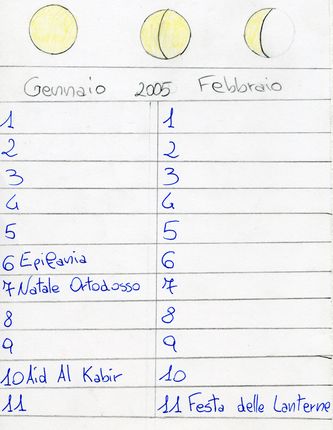 Gennaio 2005 Febbraio
1 1
2 2
3 3
4 4
5 5
6 Epifania 6
7 Natale Ortodosso 7
8 8
9 9
10 Aid Al Kabir 10
11 11 Festa delle Lanterne